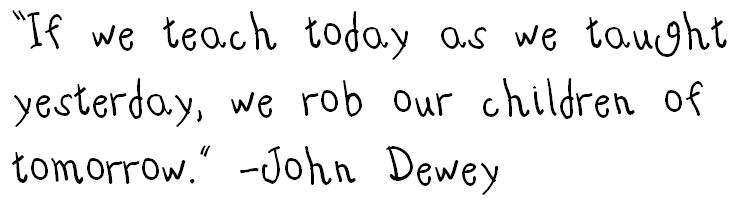 "If we teach today as we taught
yesterday, we rob our children of
tomorrow." -John Dewey